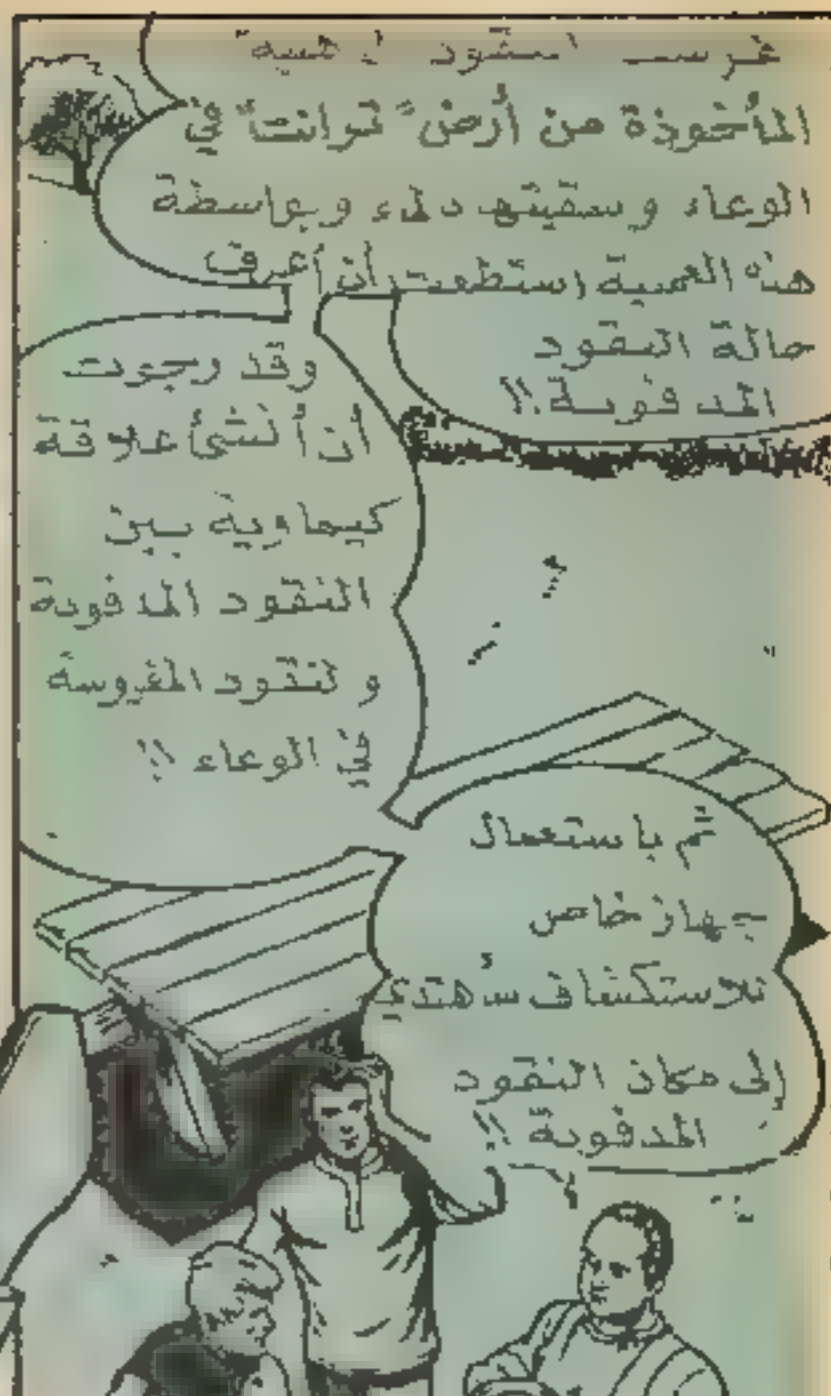 غرست النقود الذهبية
المأخوذة من أرض "ترانتا" في
الوعاء وسقيتها بالماء وبواسطة
هذه العملية استطعت أن أعرف
حالة النقود
المدفونة !!
وقد رجوت
أن أنشئ علاقة
كيماوية بين
النقود المدفونة
والنقود المغروسة
في الوعاء !!
ثم باستعمال
جهاز خاص
للاستكشاف سأهتدي
إلى مكان النقود
المدفونة !!